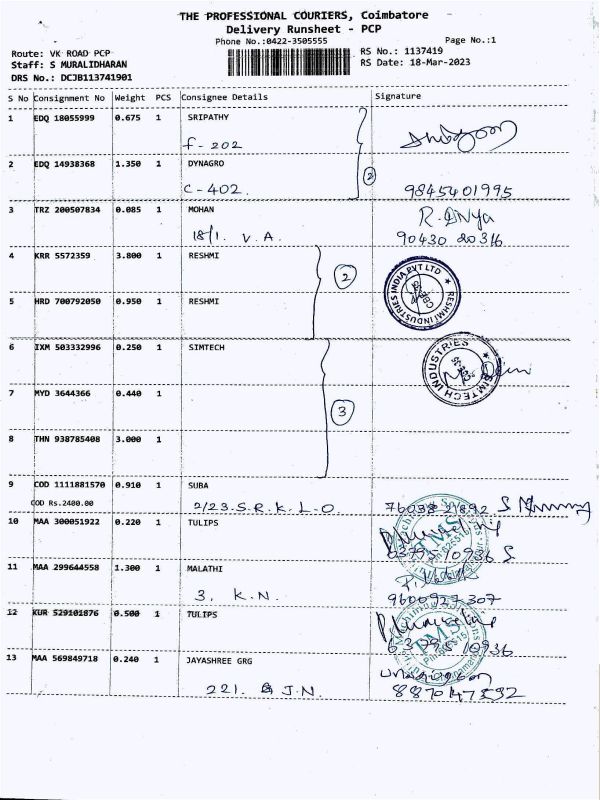 THE PROFESSIONAL COURIERS, Coimbatore
Delivery Runsheet - PCP
Phone No.:0422-3505555 Page No.:1
Route: VK ROAD PCP RS No.: 1137419
Staff: S MURALIDHARAN RS Date: 18-Mar-2023
DRS No.: DCJB113741901
S No Consignment No Weight PCS Consignee Details Signature
1 EDQ 18055999 0.675 1 SRIPATHY
f-202
2 EDQ 14938368 1.350 1 DYNAGRO
C-402. 2 9845401995
3 TRZ 200507834 0.085 1 MOHAN
18/1. V.A. 90430 20316
4 KRR 5572359 3.800 1 RESHMI
2
RESHMI INDUSTRIES INDIA PVT LTD
5 HRD 700792050 0.950 1 RESHMI
6 IXM 503332996 0.250 1 SIMTECH
SIMTECH INDUSTRIES
7 MYD 3644366 0.440 1
3
8 THN 938785408 3.000 1
9 COD 1111881570 0.910 1 SUBA
COD Rs.2400.00 2/23-S.R.K-L-O.
10 MAA 300051922 0.220 1 TULIPS
11 MAA 299644558 1.300 1 MALATHI
3. K.N. 9600927307
12 KUR 529101876 0.500 1 TULIPS
13 MAA 569849718 0.240 1 JAYASHREE GRG
221. J.N.